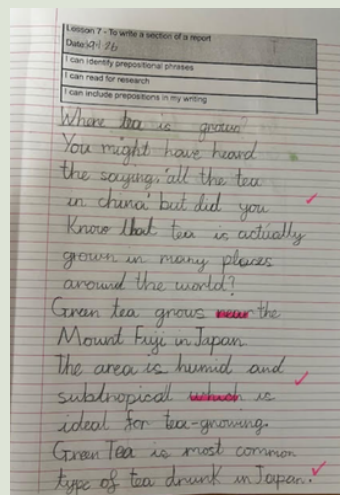 Lesson 7 - To write a section of a report
Date: 19.1.26
I can identify prepositional phrases
I can read for research
I can include prepositions in my writing
Where tea is grown?
You might have heard
the saying, 'all the tea
in china' but did you
Know that tea is actually
grown in many places
around the world?
Gran tea grows near the
Mount Fuji in Japan.
The area is humid and
subtropical which is
ideal for tea-growing.
Green Tea is most common
type of tea drunk in Japan.